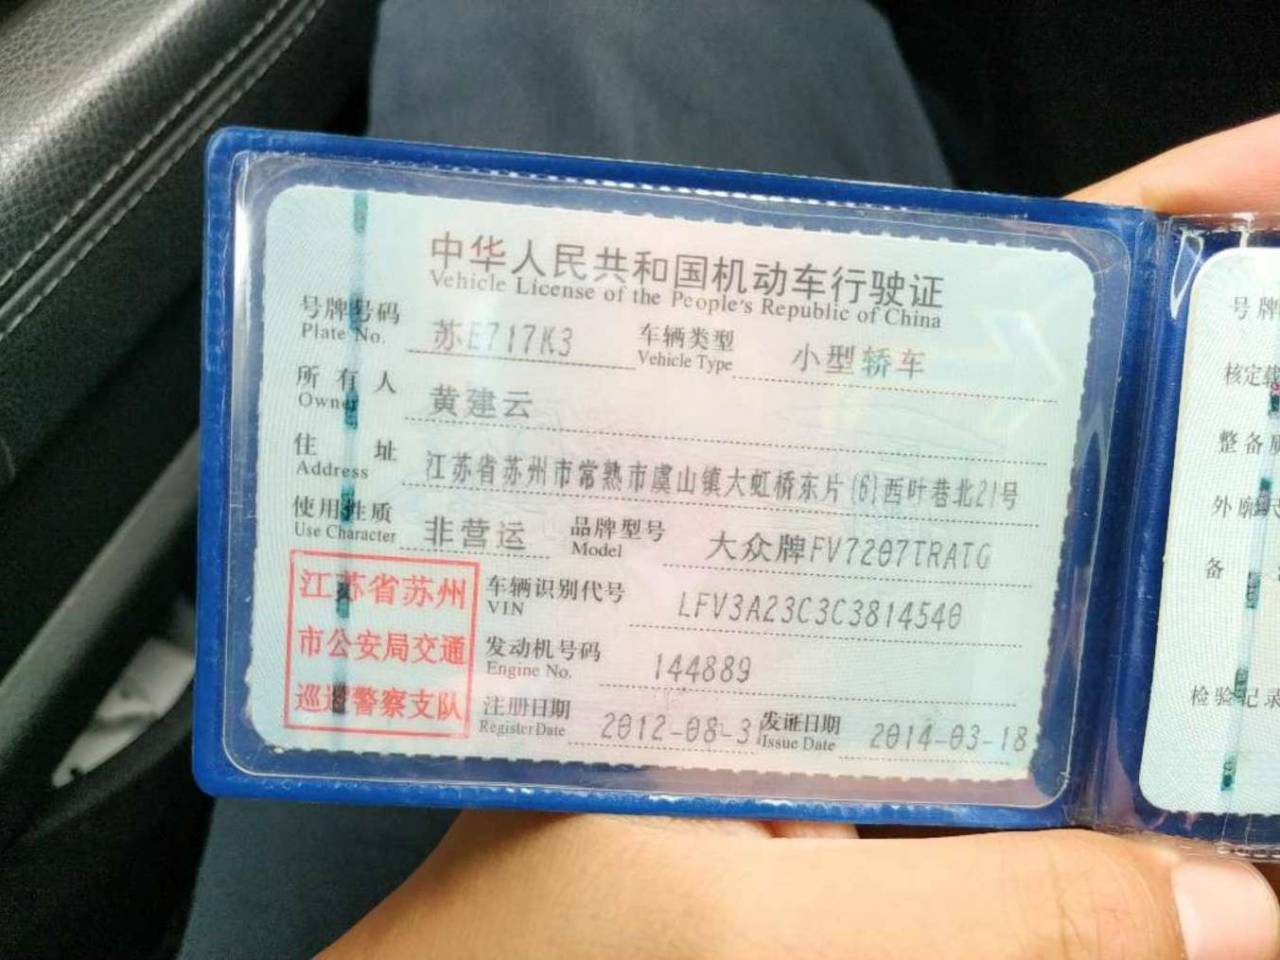 中华人民共和国机动车行驶证
Vehicle License of the People's Republic of China
号牌号码 苏E717K3 车辆类型 小型轿车
Plate No. Vehicle Type
所有人 黄建云
Owner
住址 江苏省苏州市常熟市虞山镇大虹桥东片(6)西叶巷北21号
Address
使用性质 非营运 品牌型号 大众牌FV7207TRATG
Use Character Model
江苏省苏州
市公安局交通
巡逻警察支队
车辆识别代号 LFV3A23C3C3814540
VIN
发动机号码 144889
Engine No.
注册日期 2012-08-3 发证日期 2014-03-18
Register Date Issue Date
号牌
核定载
整备质
外廓尺
备
检验记录